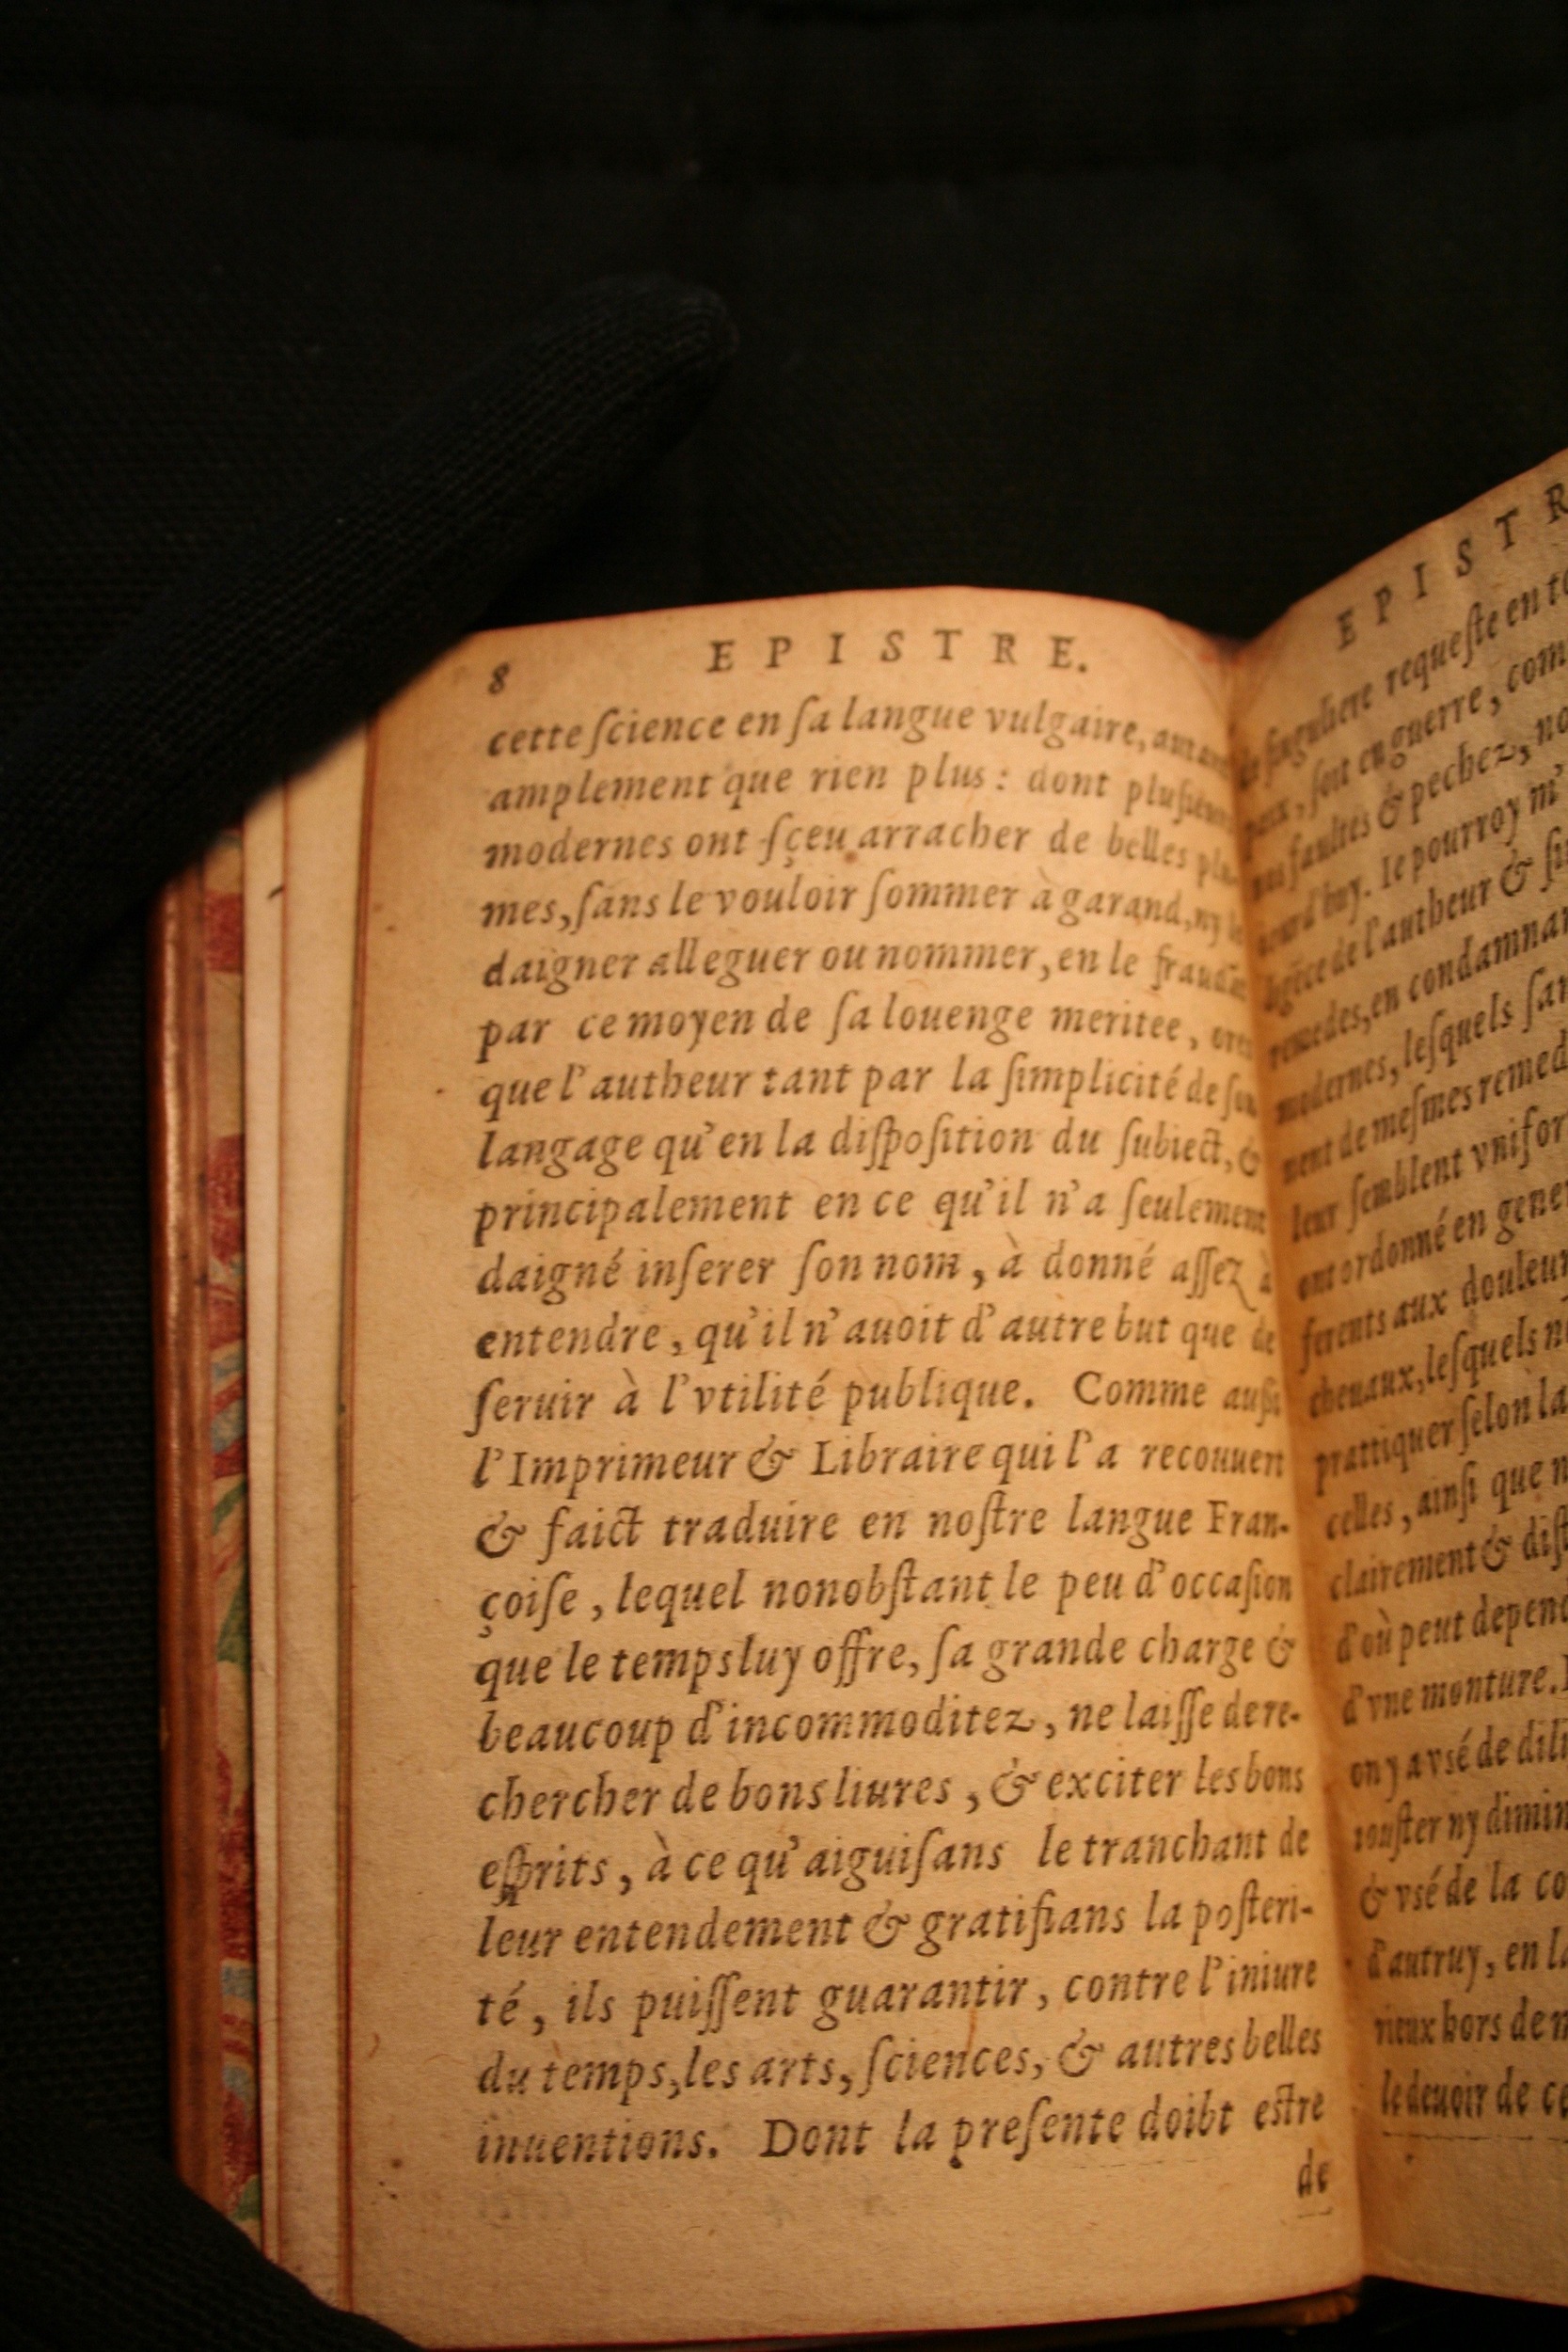 8 EPISTRE.
cette ſcience en ſa langue vulgaire, autant
amplement que rien plus : dont pluſieurs
modernes ont ſçeu arracher de belles plu-
mes, ſans le vouloir ſommer à garand, ny le
daigner alleguer ou nommer, en le fraudãt
par ce moyen de ſa louenge meritee, ores
que l'autheur tant par la ſimplicité de ſon
langage qu'en la diſpoſition du ſubiect, &
principalement en ce qu'il n'a ſeulement
daigné inſerer ſon nom, à donné aſſez à
entendre, qu'il n'auoit d'autre but que de
ſeruir à l'vtilité publique. Comme auſſi
l'Imprimeur & Libraire qui l'a recouuert
& faict traduire en noſtre langue Fran-
çoiſe, lequel nonobſtant le peu d'occaſion
que le temps luy offre, ſa grande charge &
beaucoup d'incommoditez, ne laiſſe de re-
chercher de bons liures, & exciter les bons
eſprits, à ce qu'aiguiſans le tranchant de
leur entendement & gratifians la poſteri-
té, ils puiſſent guarantir, contre l'iniure
du temps, les arts, ſciences, & autres belles
inuentions. Dont la preſente doibt eſtre
de
EPISTR
ſinguliere requeſte en
ſoit en guerre, com
faultes & pechez,
huy. Ie pourroy m'
de l'autheur &
remedes, en condamnan
modernes, leſquels
nent de meſmes remed
leur ſemblent vnifor
ont ordonné en gene
ferents aux douleur
cheuaux, leſquels
prattiquer ſelon la
celles, ainſi que
clairement &
d'où peut depen
d'vne monture.
on y a vsé de
iouſter ny dimin
& vsé de la co
d'autruy, en la
rieux hors de
le deuoir de ce